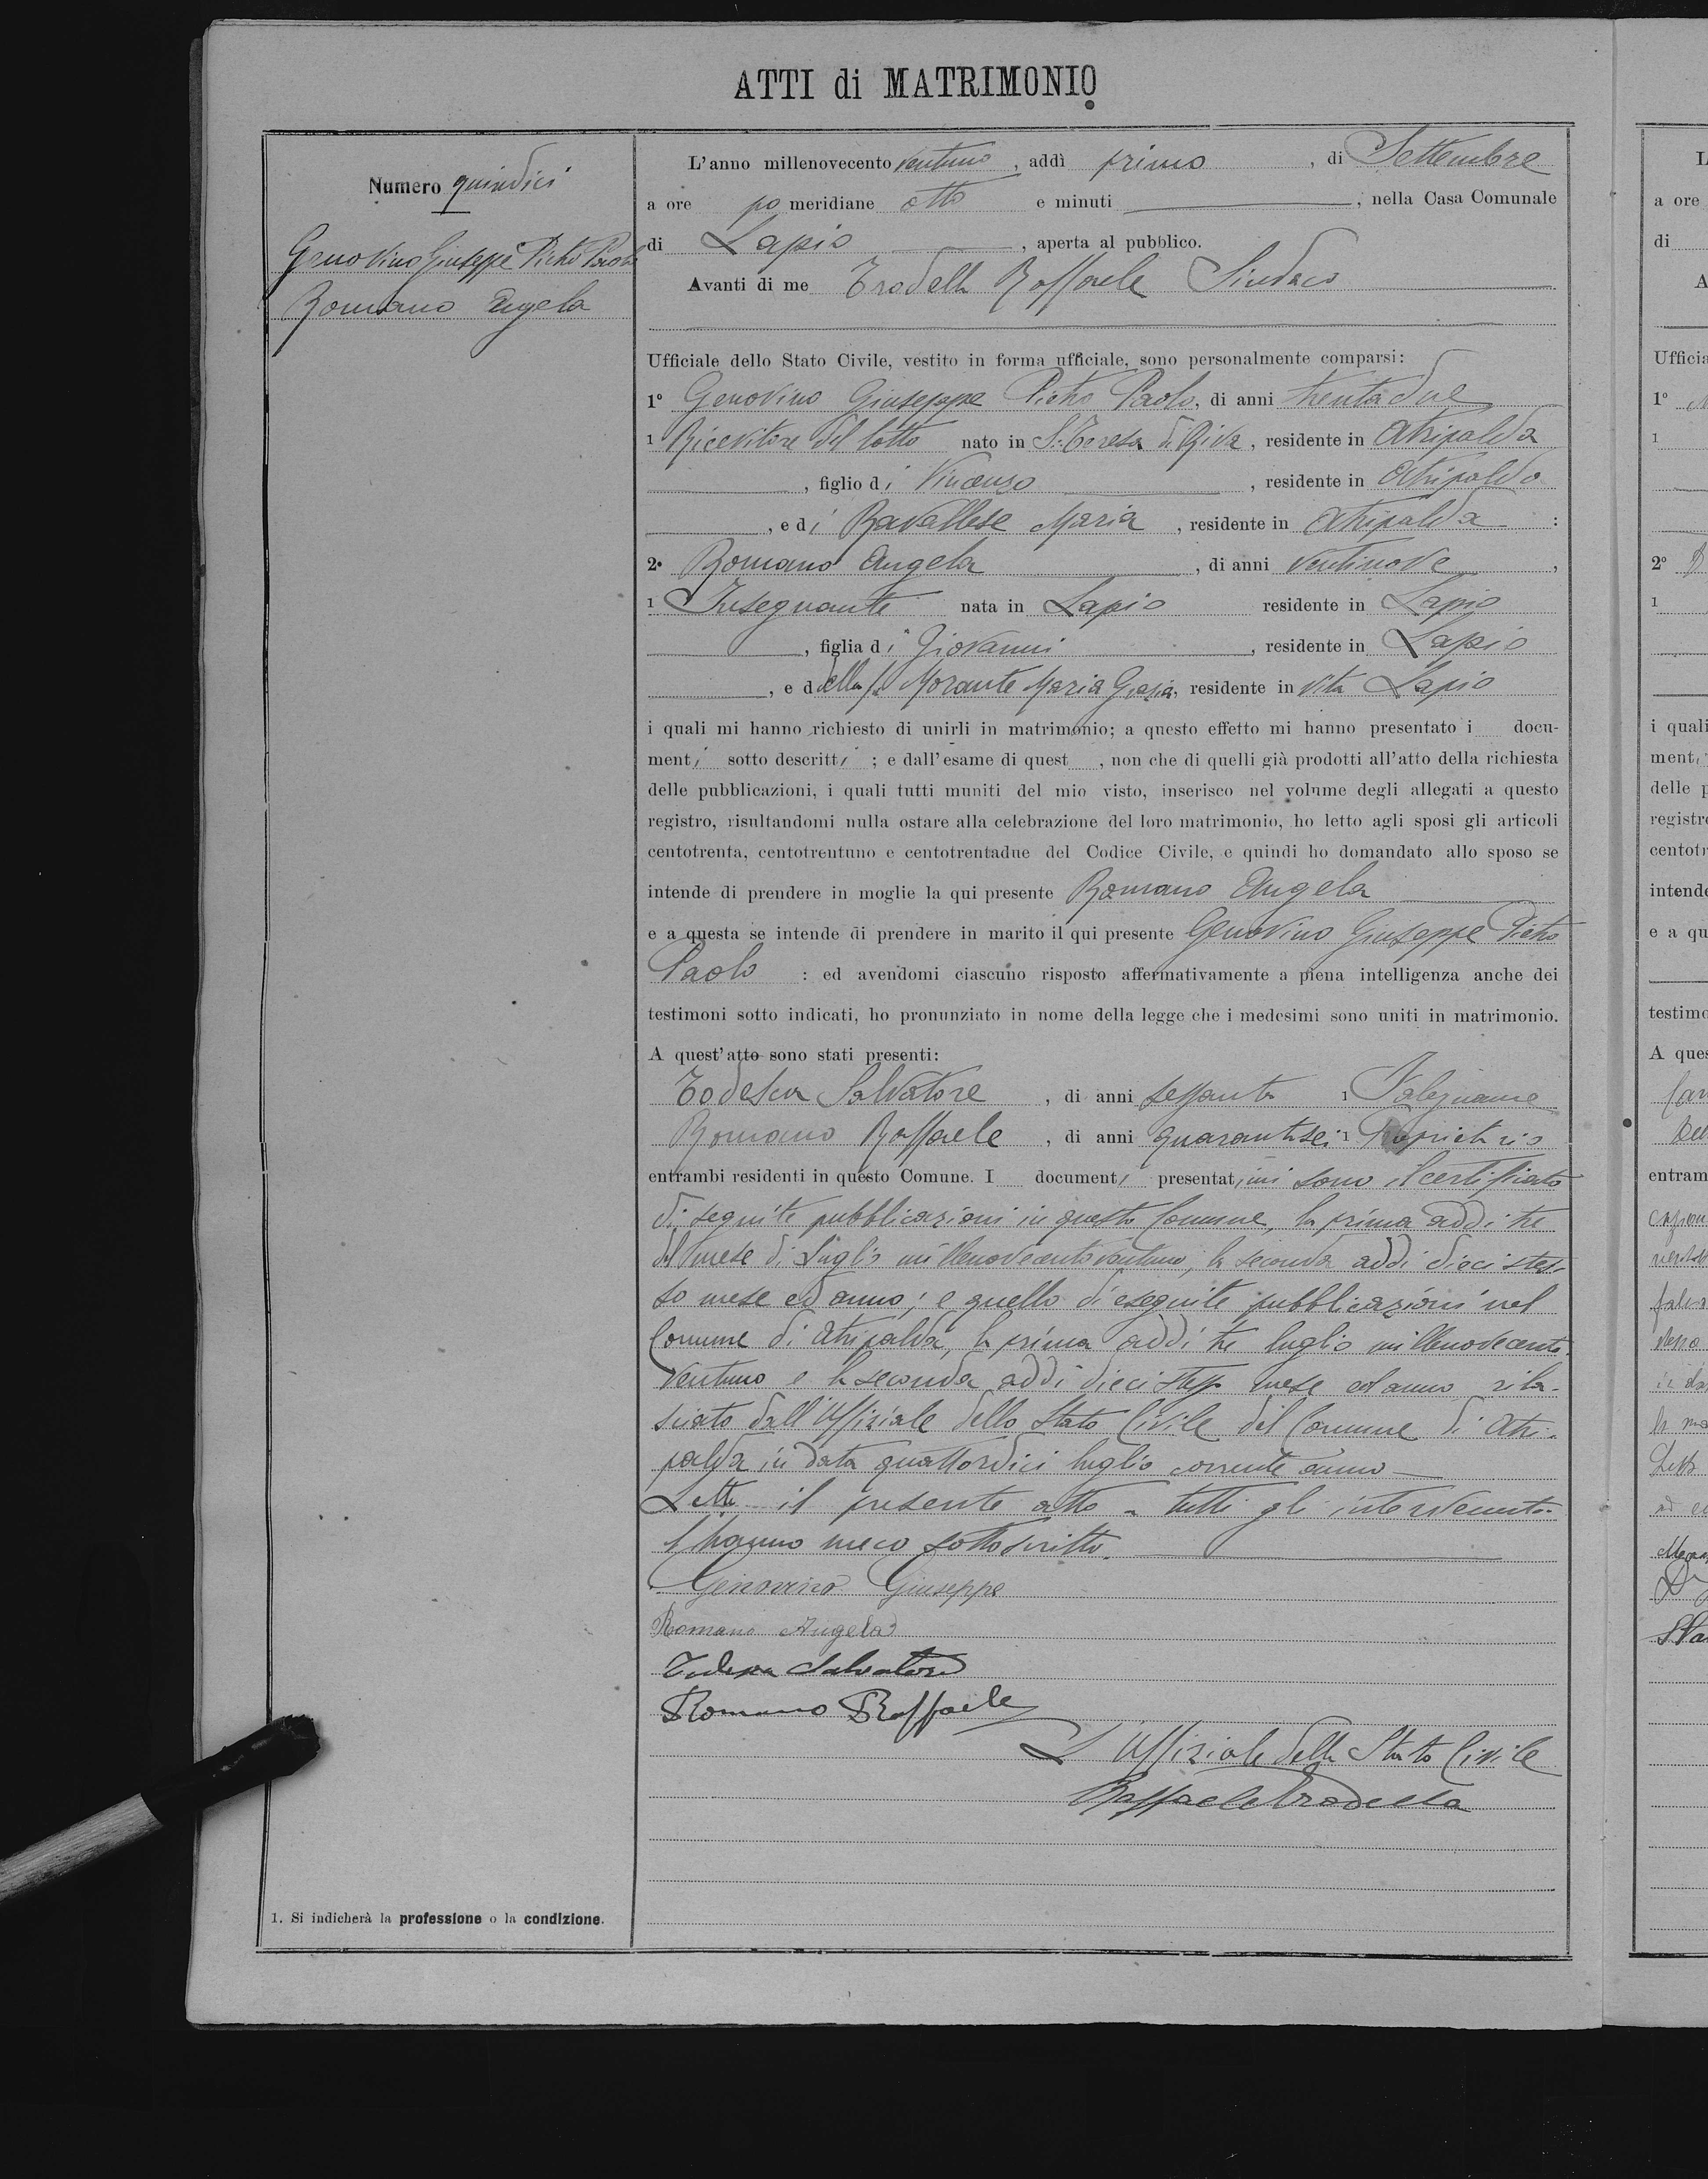 ATTI di MATRIMONIO
Numero quindici
Genovino Giuseppe Pietro Paolo
Romano Angela
L'anno millenovecento ventuno, addì primo, di Settembre
a ore po meridiane otto e minuti, nella Casa Comunale
di Lapio, aperta al pubblico.
Avanti di me Trodella Raffaele Sindaco
Ufficiale dello Stato Civile, vestito in forma ufficiale, sono personalmente comparsi:
1° Genovino Giuseppe Pietro Paolo, di anni trentadue
1 Ricevitore del lotto nato in S. Teresa di Riva, residente in Atripalda
, figlio di Vincenzo, residente in Atripalda
, e di Ravallese Maria, residente in Atripalda :
2° Romano Angela, di anni ventinove,
1 Insegnante nata in Lapio residente in Lapio
, figlia di Giovanni, residente in Lapio
, e della fu Morante Maria Grazia, residente in vita Lapio
i quali mi hanno richiesto di unirli in matrimonio; a questo effetto mi hanno presentato i docu-
menti sotto descritti ; e dall'esame di quest , non che di quelli già prodotti all'atto della richiesta
delle pubblicazioni, i quali tutti muniti del mio visto, inserisco nel volume degli allegati a questo
registro, risultandomi nulla ostare alla celebrazione del loro matrimonio, ho letto agli sposi gli articoli
centotrenta, centotrentuno e centotrentadue del Codice Civile, e quindi ho domandato allo sposo se
intende di prendere in moglie la qui presente Romano Angela
e a questa se intende di prendere in marito il qui presente Genovino Giuseppe Pietro
Paolo : ed avendomi ciascuno risposto affermativamente a piena intelligenza anche dei
testimoni sotto indicati, ho pronunziato in nome della legge che i medesimi sono uniti in matrimonio.
A quest'atto sono stati presenti:
Todesca Salvatore, di anni sessanta 1 Falegname
Romano Raffaele, di anni quarantasei 1 Proprietario
entrambi residenti in questo Comune. I documenti presentatimi sono il certificato
di seguite pubblicazioni in questo Comune, la prima addi tre
del mese di Luglio millenovecentoventuno, la seconda addi dieci stes-
so mese ed anno; e quello di eseguite pubblicazioni nel
Comune di Atripalda, la prima addi tre luglio millenovecento
ventuno e la seconda addi dieci stesso mese ed anno rila-
sciato dall'Uffiziale dello Stato Civile del Comune di Atri-
palda in data quattordici luglio corrente anno
Letto il presente atto a tutti gli intervenuti
l'hanno meco sottoscritto.
Genovino Giuseppe
Romano Angela
Todesca Salvatore
Romano Raffaele
L'Uffiziale dello Stato Civile
Raffaele Trodella
1. Si indicherà la professione o la condizione.